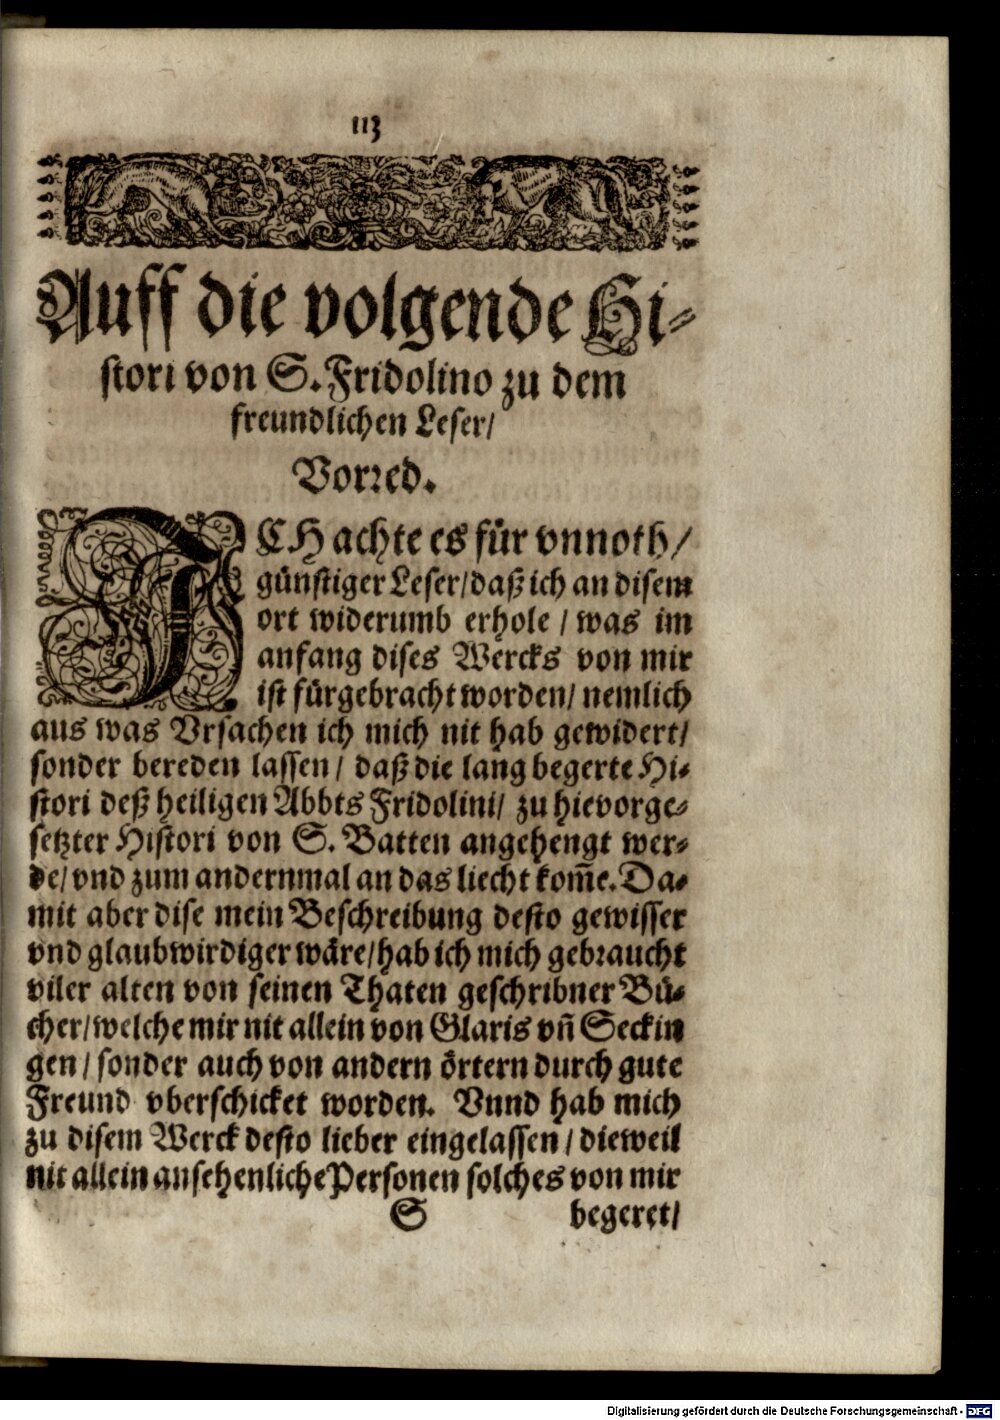 113
Auff die volgende Hi-
stori von S. Fridolino zu dem
freundlichen Leser/
Vorred.
ICH achte es für vnnoth/
günstiger Leser/daß ich an disem
ort widerumb erhole / was im
anfang dises Wercks von mir
ist fürgebracht worden/ nemlich
aus was Vrsachen ich mich nit hab gewidert/
sonder bereden lassen / daß die lang begerte Hi-
stori deß heiligen Abbts Fridolini/ zu hievorge-
setzter Histori von S. Batten angehengt wer-
de/ vnd zum andernmal an das liecht kom̃e. Da-
mit aber dise mein Beschreibung desto gewisser
vnd glaubwirdiger wäre/hab ich mich gebraucht
viler alten von seinen Thaten geschribner Bü-
cher/welche mir nit allein von Glaris vñ Seckin
gen / sonder auch von andern örtern durch gute
Freund vberschicket worden. Vnnd hab mich
zu disem Werck desto lieber eingelassen / dieweil
nit allein ansehenliche Personen solches von mir
S begeret/
Digitalisierung gefördert durch die Deutsche Forschungsgemeinschaft - DFG